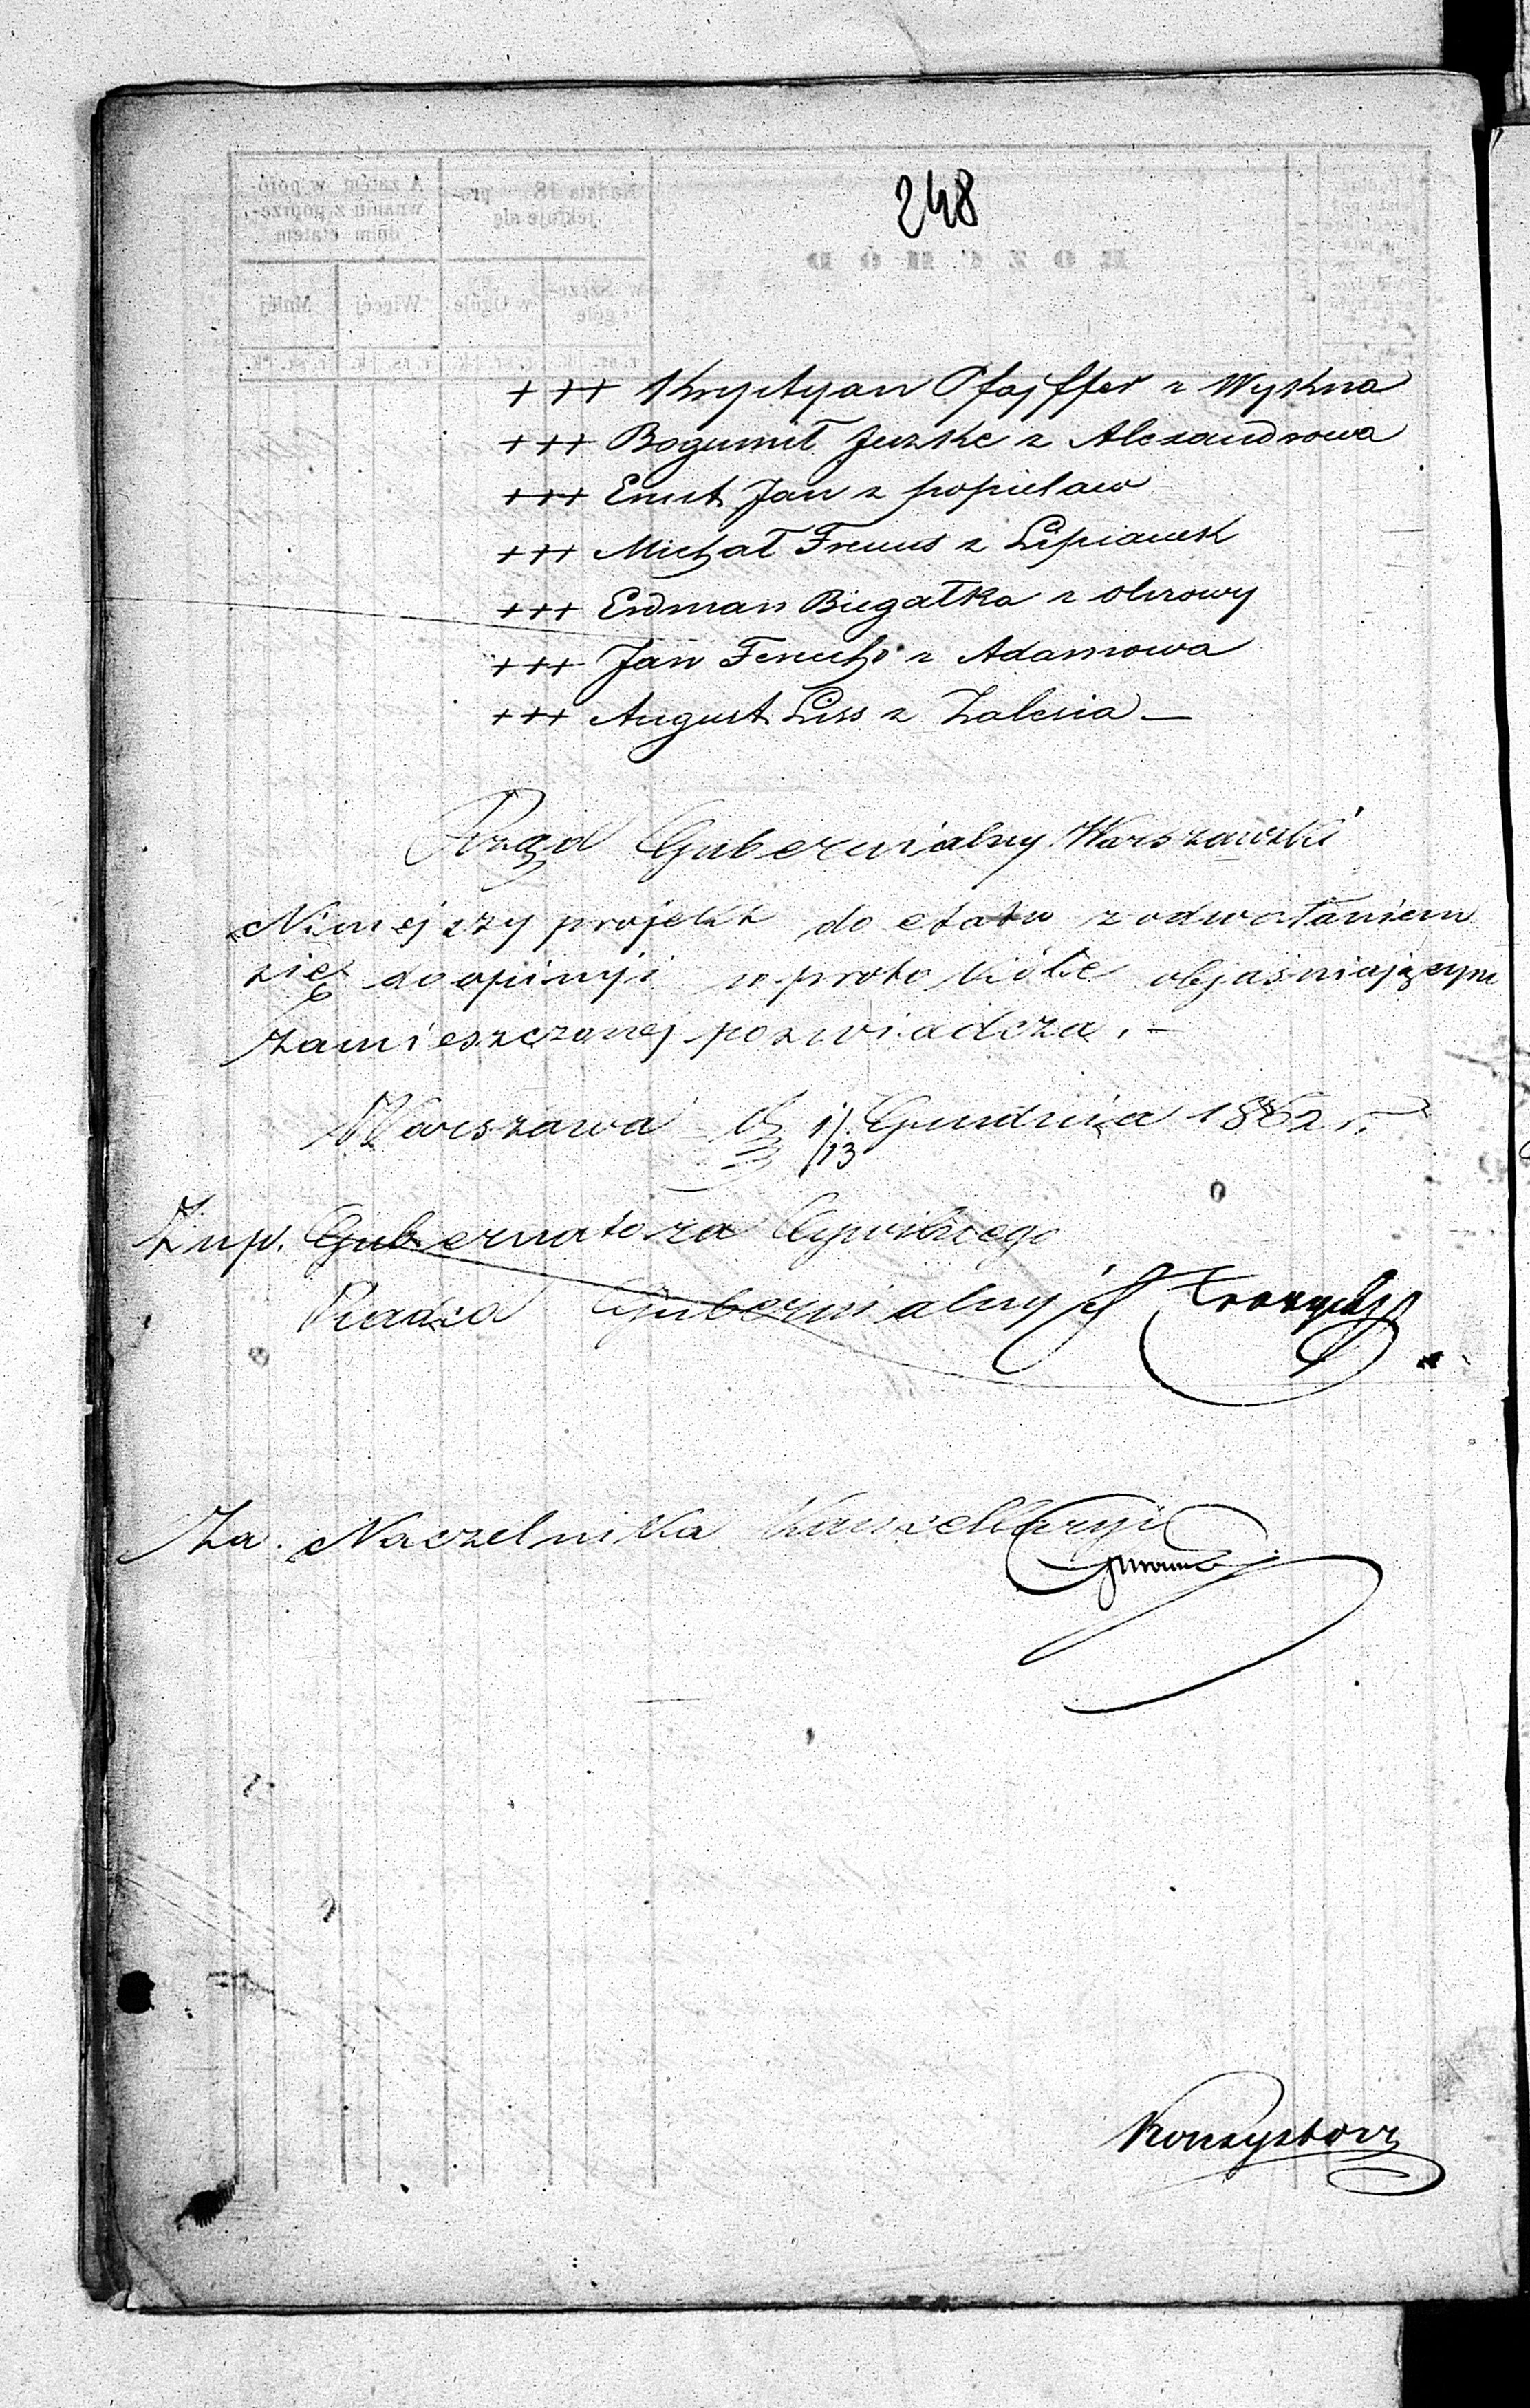 248
+++ Krystyan Pfajffer z Wyskna
+++ Bogumił Juzske z Alexandrowa
+++ Ernst Jan z popielaw
+++ Michał z Lipianek
+++ Erdman Biegałka z olszowy
+++ Jan z Adamowa
+++ August Liss z Zalesia —
Rząd Gubernialny Warszawski
Niniejszy projekt do etatu z odwołaniem
się do opinyi w protokóle objaśniającym
zamieszczonej poswiadcza. —
Warszawa d 1/13 Grudnia 1862 r.
Z up. Gubernatora Cywilnego
Radca Gubernialny
Za. Naczelnika Kancellaryi